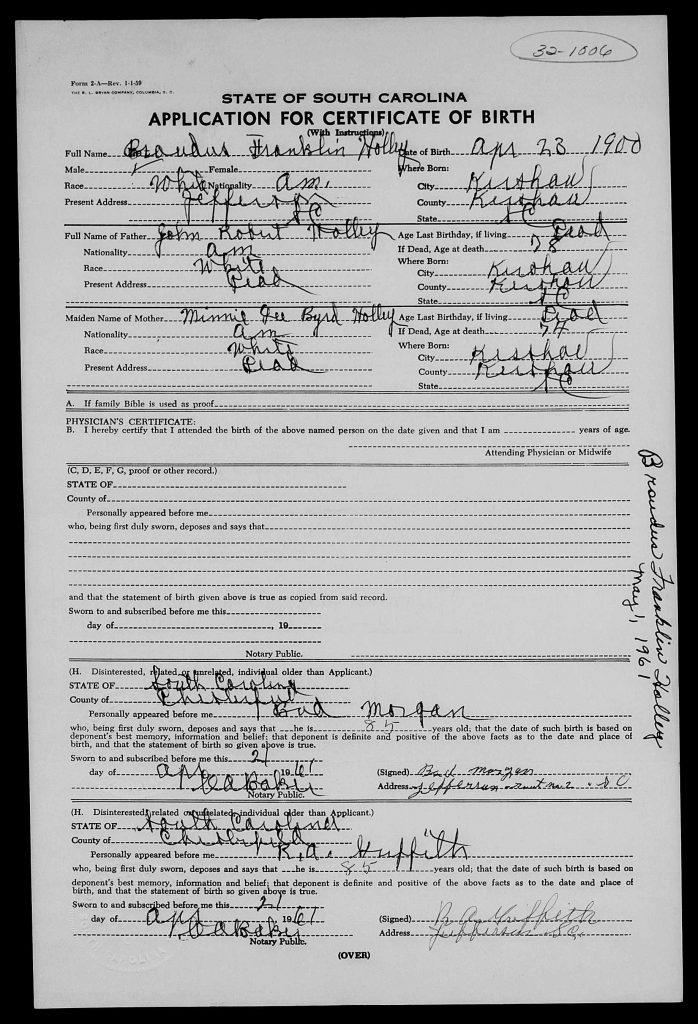 32-1006
Form 2-A—Rev. 1-1-59
THE R. L. BRYAN COMPANY, COLUMBIA, S. C.
STATE OF SOUTH CAROLINA
APPLICATION FOR CERTIFICATE OF BIRTH
(With Instructions)
Full Name Braudus Franklin Holley Date of Birth Apr 23 1900
Male ✓ Female Where Born:
Race White Nationality Am. City Kershaw
Present Address Jefferson County Kershaw
SC State SC
Full Name of Father John Robert Holley Age Last Birthday, if living Dead
Nationality Am If Dead, Age at death 78
Race White Where Born:
City Kershaw
Present Address Dead County Kershaw
State SC
Maiden Name of Mother Minnie Dee Byrd Holley Age Last Birthday, if living Dead
Nationality Am If Dead, Age at death 74
Race White Where Born:
City Kershaw
Present Address Dead County Kershaw
State SC
A. If family Bible is used as proof
PHYSICIAN'S CERTIFICATE:
B. I hereby certify that I attended the birth of the above named person on the date given and that I am years of age.
Attending Physician or Midwife
(C, D, E, F, G, proof or other record.)
STATE OF
County of
Personally appeared before me
who, being first duly sworn, deposes and says that
and that the statement of birth given above is true as copied from said record.
Sworn to and subscribed before me this
day of , 19
Notary Public.
(H. Disinterested, related or unrelated, individual older than Applicant.)
STATE OF South Carolina
County of Chesterfield
Personally appeared before me Bud Morgan
who, being first duly sworn, deposes and says that he is 85 years old; that the date of such birth is based on
deponent's best memory, information and belief; that deponent is definite and positive of the above facts as to the date and place of
birth, and that the statement of birth so given above is true.
Sworn to and subscribed before me this 21
day of Apr 1961 (Signed) Bud Morgan
Baker Address Jefferson Rout no. 2 S C
Notary Public.
(H. Disinterested, related or unrelated, individual older than Applicant.)
STATE OF South Carolina
County of Chesterfield
Personally appeared before me R. A. Griffith
who, being first duly sworn, deposes and says that he is 85 years old; that the date of such birth is based on
deponent's best memory, information and belief; that deponent is definite and positive of the above facts as to the date and place of
birth, and that the statement of birth so given above is true.
Sworn to and subscribed before me this 21
day of Apr 1961 (Signed) R A Griffith
Baker Address Jefferson S.C.
Notary Public.
(OVER)
Braudus Franklin Holley
May 1, 1961